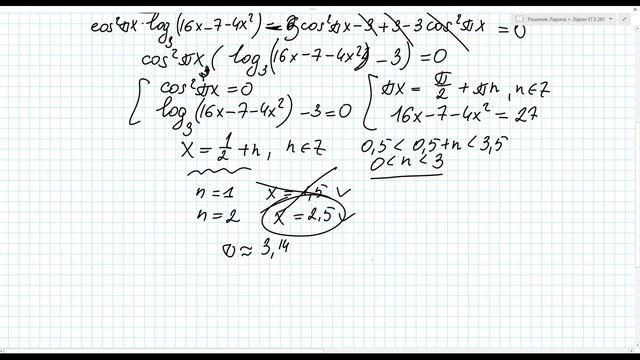 cos²πx·log₃(16x-7-4x²) - 3cos²πx - 3 + 3 - 3cos²πx = 0
Решение Ларина > Ларин ЕГЭ 281
cos²πx (log₃(16x-7-4x²) - 3) = 0
cos²πx = 0
πx = π/2 + πn, n∈Z
log₃(16x-7-4x²) - 3 = 0
16x-7-4x² = 27
x = 1/2 + n, n∈Z
0,5 < 0,5+n < 3,5
0 < n < 3
n = 1 x = 1,5 ✓
n = 2 x = 2,5 ✓
≈ 3,14